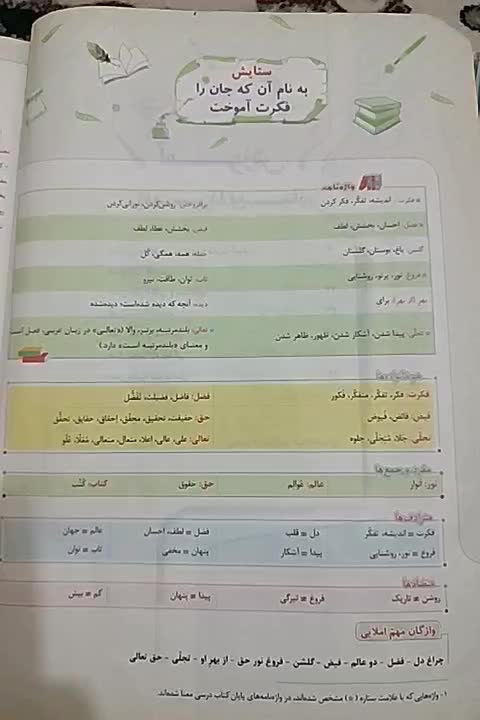 ستایش
به نام آن که جان را
فکرت آموخت
واژه‌نامه
* فکرت: اندیشه، تفکّر، فکر کردن
برافروختن: روشن‌کردن، نورانی‌کردن
* فضل: احسان، بخشش، لطف
فیض: بخشش، عطا، لطف
گلشن: باغ، بوستان، گلستان
جمله: همه، همگی، کُل
* فروغ: نور، پرتو، روشنایی
تاب: توان، طاقت، نیرو
بهر (از بهر): برای
دیده: آنچه که دیده شده‌است؛ دیده‌شده
* تجلّی: پیدا شدن، آشکار شدن، ظهور، ظاهر شدن
* تعالی: بلندمرتبه، برتر، والا («تعالی» در زبان عربی، فعل است
و معنای «بلندمرتبه است» دارد.)
هم‌خانواده‌ها
فکرت: فکر، تفکّر، متفکّر، فکور
فضل: فاضل، فضیلت، تَفَضُّل
فیض: فائض، فُیوض
حق: حقیقت، تحقیق، محقّق، إحقاق، حقایق، تحقّق
تجلّی: جَلا، مُتِجَلّی، جلوه
تعالی: علی، عالی، اعلا، متعال، متعالی، مُعَلّا، عُلُو
مفرد و جمع‌ها
نور: اَنوار
عالَم: عَوالِم
حق: حقوق
کتاب: کُتُب
مترادف‌ها
فکرت = اندیشه، تفکّر
دل = قلب
فضل = لطف، احسان
عالم = جهان
فروغ = نور، روشنایی
پیدا = آشکار
پنهان = مخفی
تاب = توان
متضادها
روشن ≠ تاریک
فروغ ≠ تیرگی
پیدا ≠ پنهان
کم ≠ بیش
واژگان مهمّ املایی
چراغ دل - فضل - دو عالم - فیض - گلشن - فروغ نور حق - از بهر او - تجلّی - حق تعالی
۱- واژه‌هایی که با علامت ستاره (*) مشخص شده‌اند، در واژه‌نامه‌های پایان کتاب درسی معنا شده‌اند.